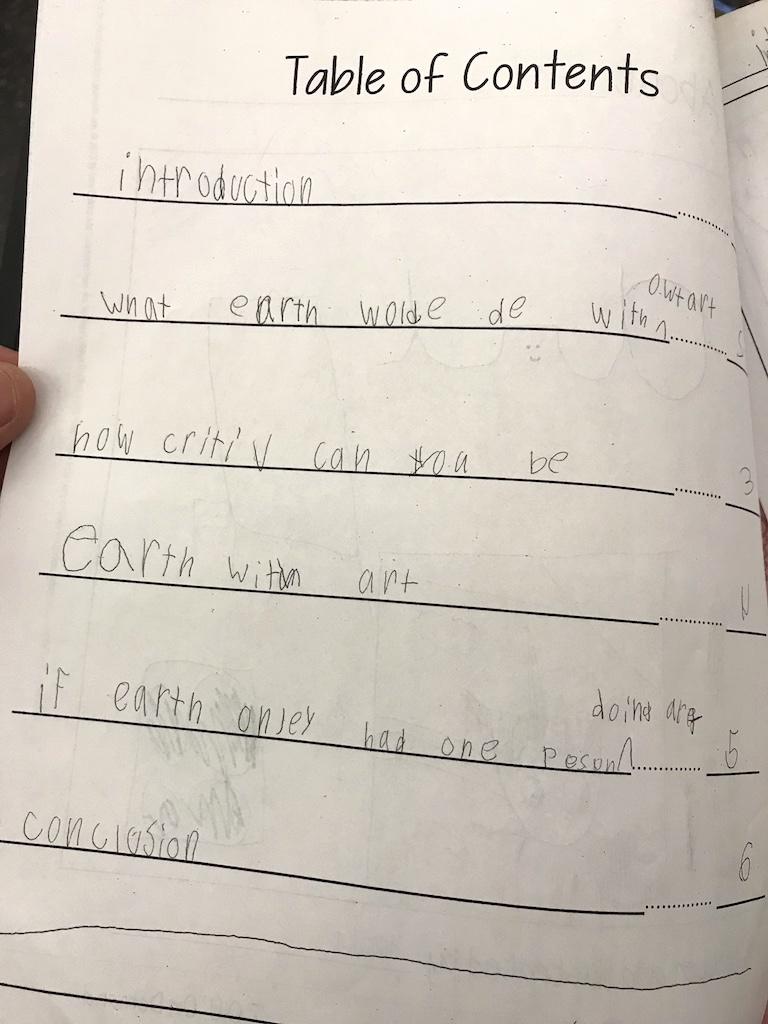 Table of Contents
introduction
what earth wolde de with owt art
how critiv can you be 3
Earth with art
if earth onley had one peson doing art 5
conclusion 6